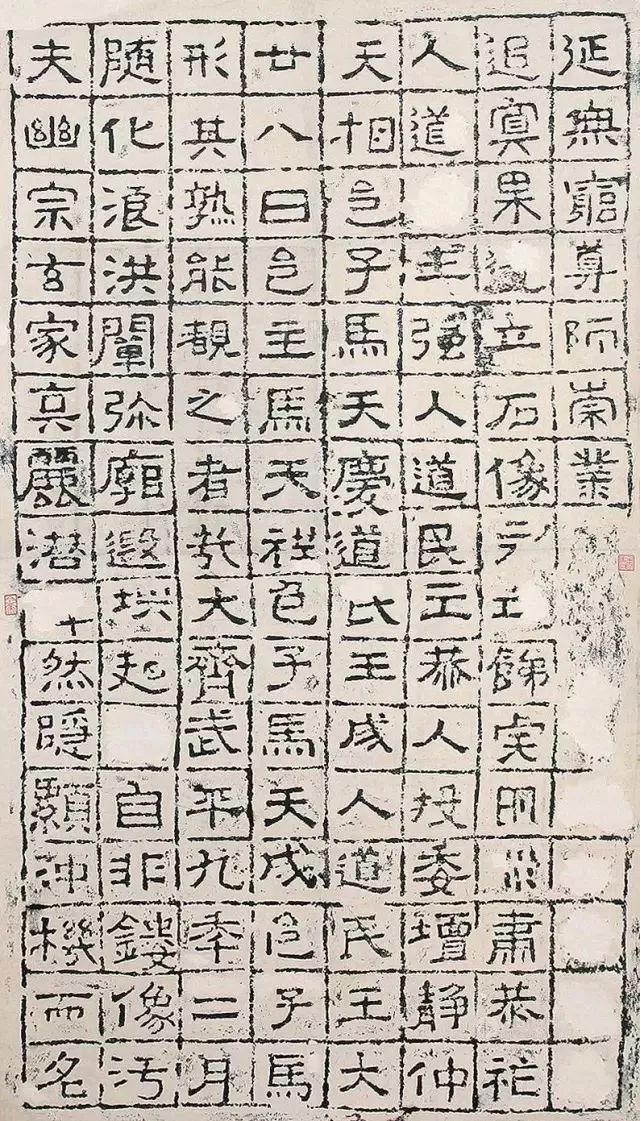 夫幽宗玄家麗潜然隱顯沖機而名
随化浪洪闡弥廓遐埛起自非鏤像污
形其孰能覩之者哉大齊武平九年二月
廿八日邑主馬天祥邑子馬天成邑子馬
天相邑子馬天慶道民王成人道民王大
人道主強人道民王恭人投委壇静仲
追冥果立石像餝肅恭祀
延無窮尊師崇業